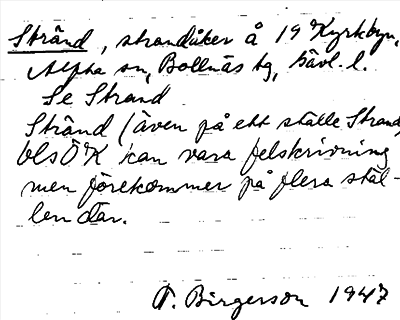 Stränd, strandåker å 19 Kyrkbyn,
Alfta sn, Bollnäs tg, Gävl. l.
Se Strand
Stränd (även på ett ställe Strand,
bls Ö K kan vara felskrivning
men förekommer på flera stäl-
len där.
T. Birgerson 1947